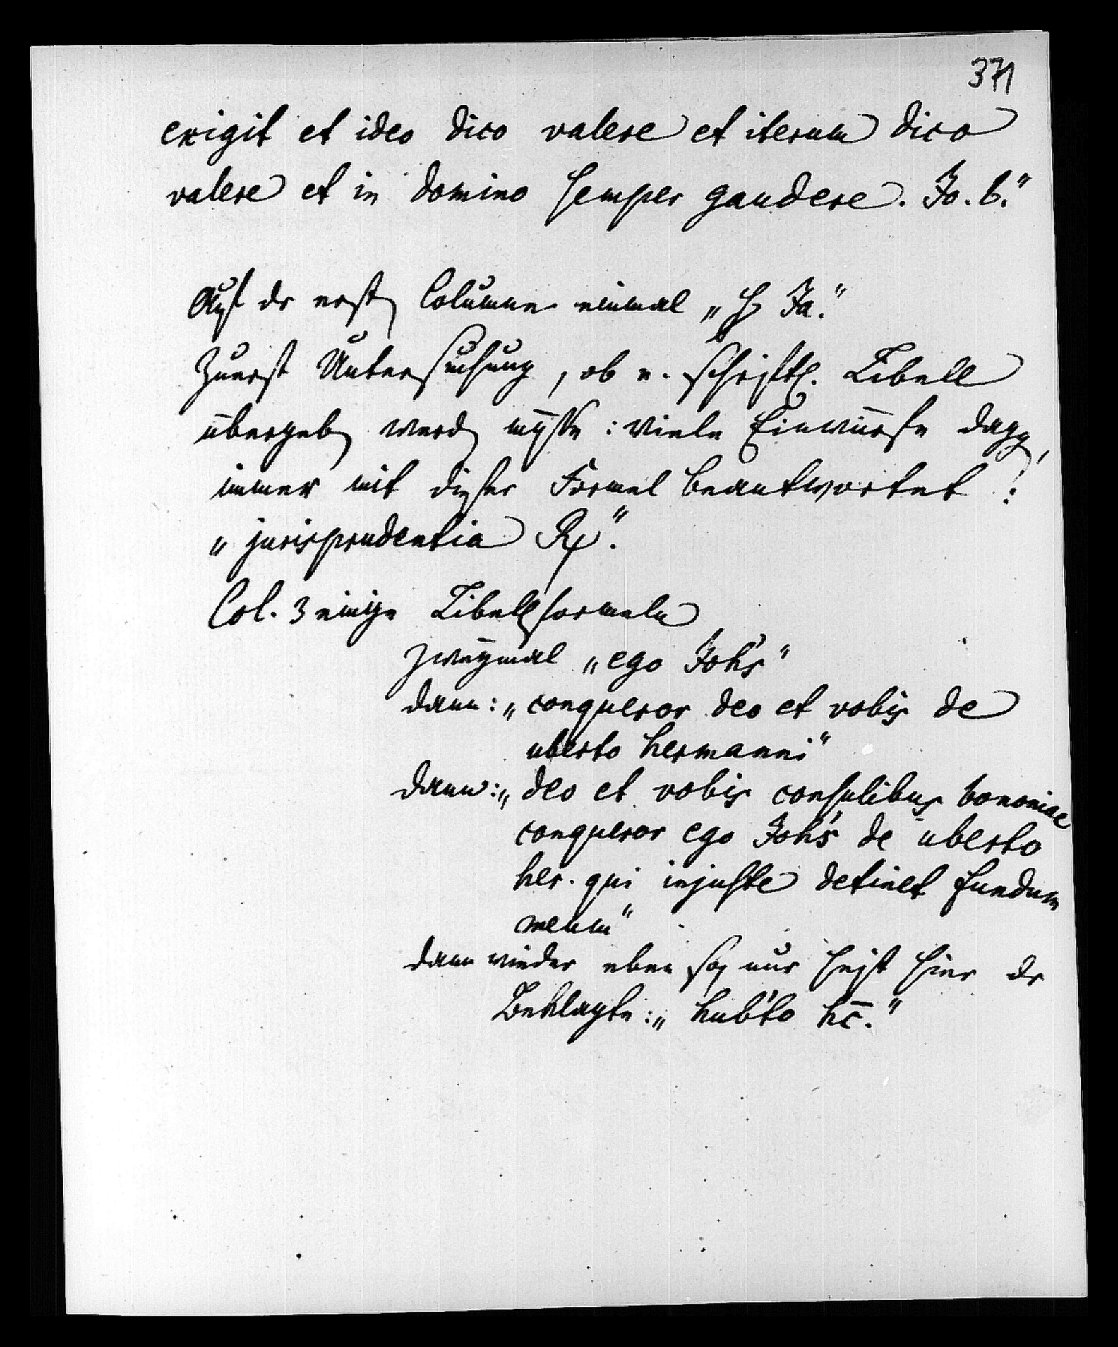 371
exigit et ideo dico valere et iterum dico
valere et in domino semper gaudere. Jo. b."
Auf dr erst Columne einmal „ Ja."
Zuerst Untersuchung, ob e. schriftl. Libell
übergeb werd müsse: viele Einwürfe dagg,
immer mit dieser Formel beantwortet:
„jurisprudentia Rx".
Col. 3 einige Libellformeln
zweymal „ego Joh's"
dann: „conqueror deo et vobis de
uberto hermanni"
dann: „deo et vobis consulibus bononiae
conqueror ego Joh's de uberto
her. qui injuste detinet fundum
meum"
dann wieder eben so, nur heist hier dr
Beklagte: „hub'to hc."